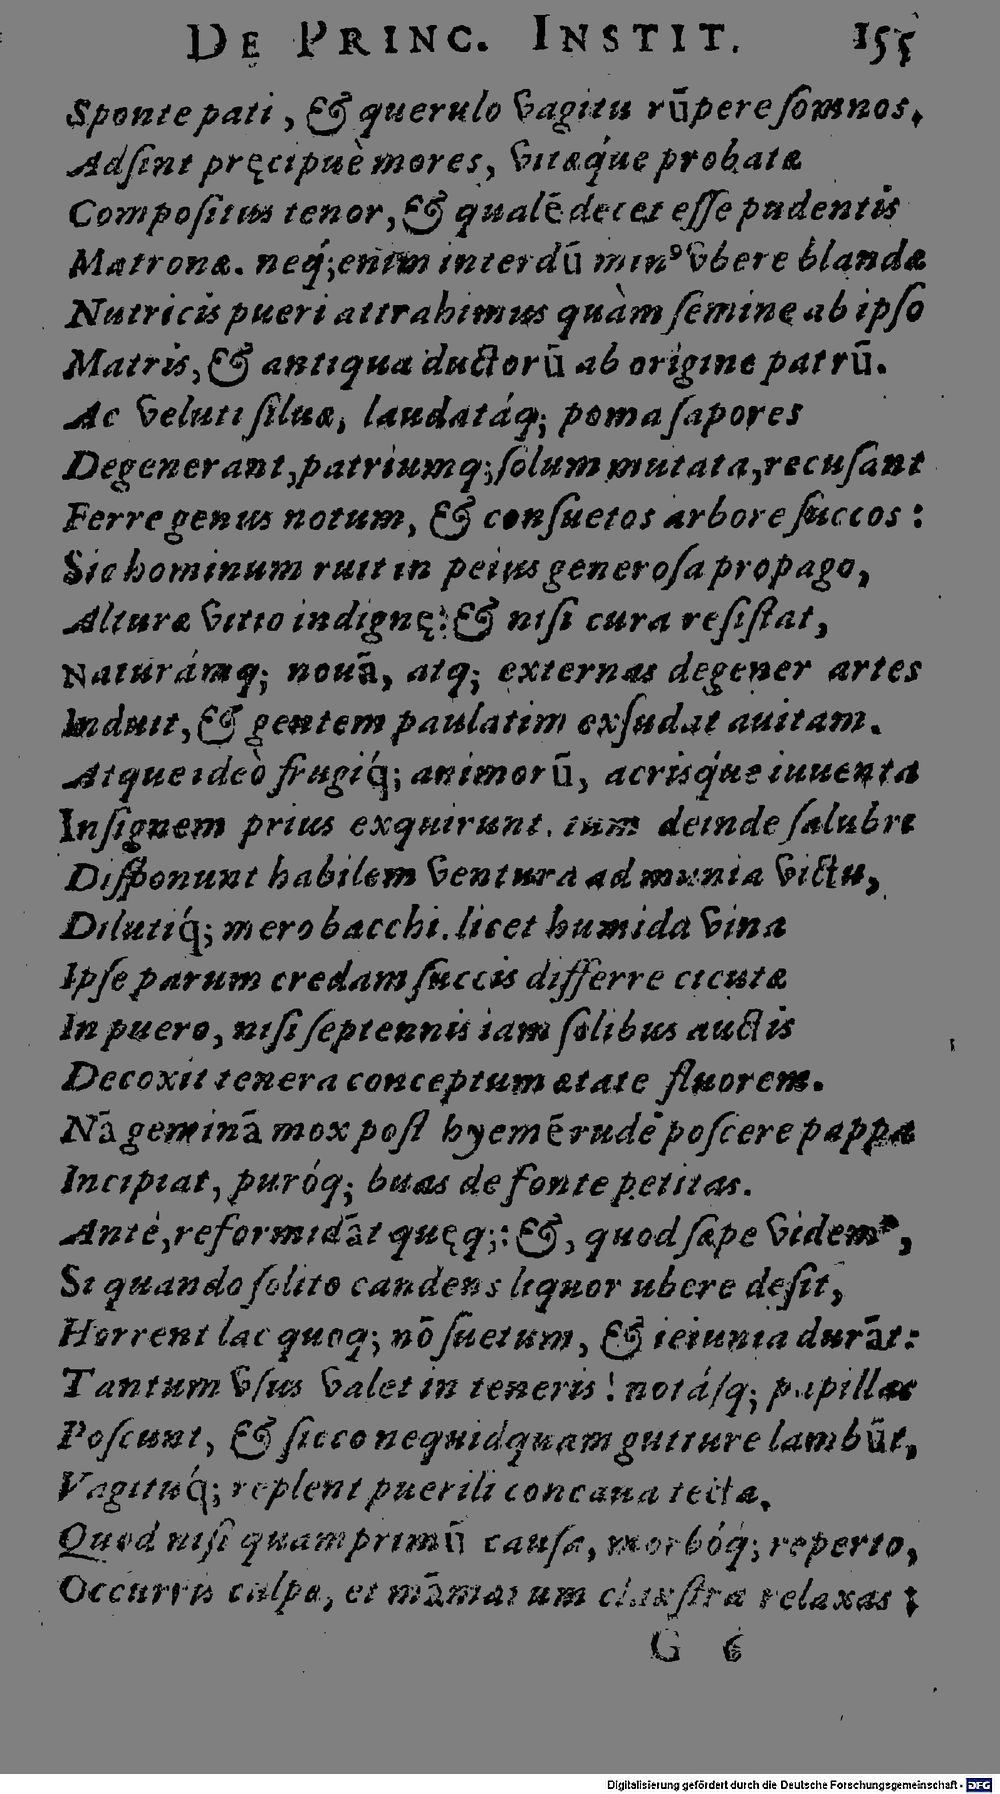 DE PRINC. INSTIT. 155
Sponte pati, & querulo vagitu rūpere ſomnos.
Adſint pręcipuè mores, vitæq́ue probatæ
Compoſitus tenor, & qualē decet eſſe pudentis
Matronæ. neq́; enim interdū minꝰ vbere blandæ
Nutricis pueri attrahimus quàm ſemine ab ipſo
Matris, & antiqua ductorū ab origine patrū.
Ac veluti ſiluæ, laudatáq; poma ſapores
Degenerant, patriumq; ſolum mutata, recuſant
Ferre genus notum, & conſuetos arbore ſuccos:
Sic hominum ruit in peius generoſa propago,
Alturæ vitio indignę: & niſi cura reſiſtat,
Naturámq; nouā, atq; externas degener artes
Induit, & gentem paulatim exſudat auitam.
Atque ideò frugiq́; animorū, acrisq́ue iuuenta
Inſignem prius exquirunt. tum deinde ſalubre
Diſponunt habilem ventura ad munia victu,
Dilutiq́; mero bacchi. licet humida vina
Ipſe parum credam ſuccis differre cicutæ
In puero, niſi ſeptennis iam ſolibus auctis
Decoxit tenera conceptum ætate fluorem.
Nā geminā mox poſt hyemē rude poſcere pappa
Incipiat, puróq; buas de fonte petitas.
Antè, reformidāt quęq;: &, quod ſæpe videmꝰ,
Si quando ſolito candens liquor ubere deſit,
Horrent lac quoq; nō ſuetum, & ieiunia durāt:
Tantum vſus valet in teneris! notáſq; papillas
Poſcunt, & ſicco nequidquam gutture lambūt,
Vagituq́; replent puerili concaua tecta.
Quod niſi quamprimū cauſa, morbóq; reperto,
Occurris culpæ, et māmarum clauſtra relaxas:
G 6
Digitalisierung gefördert durch die Deutsche Forschungsgemeinschaft - DFG